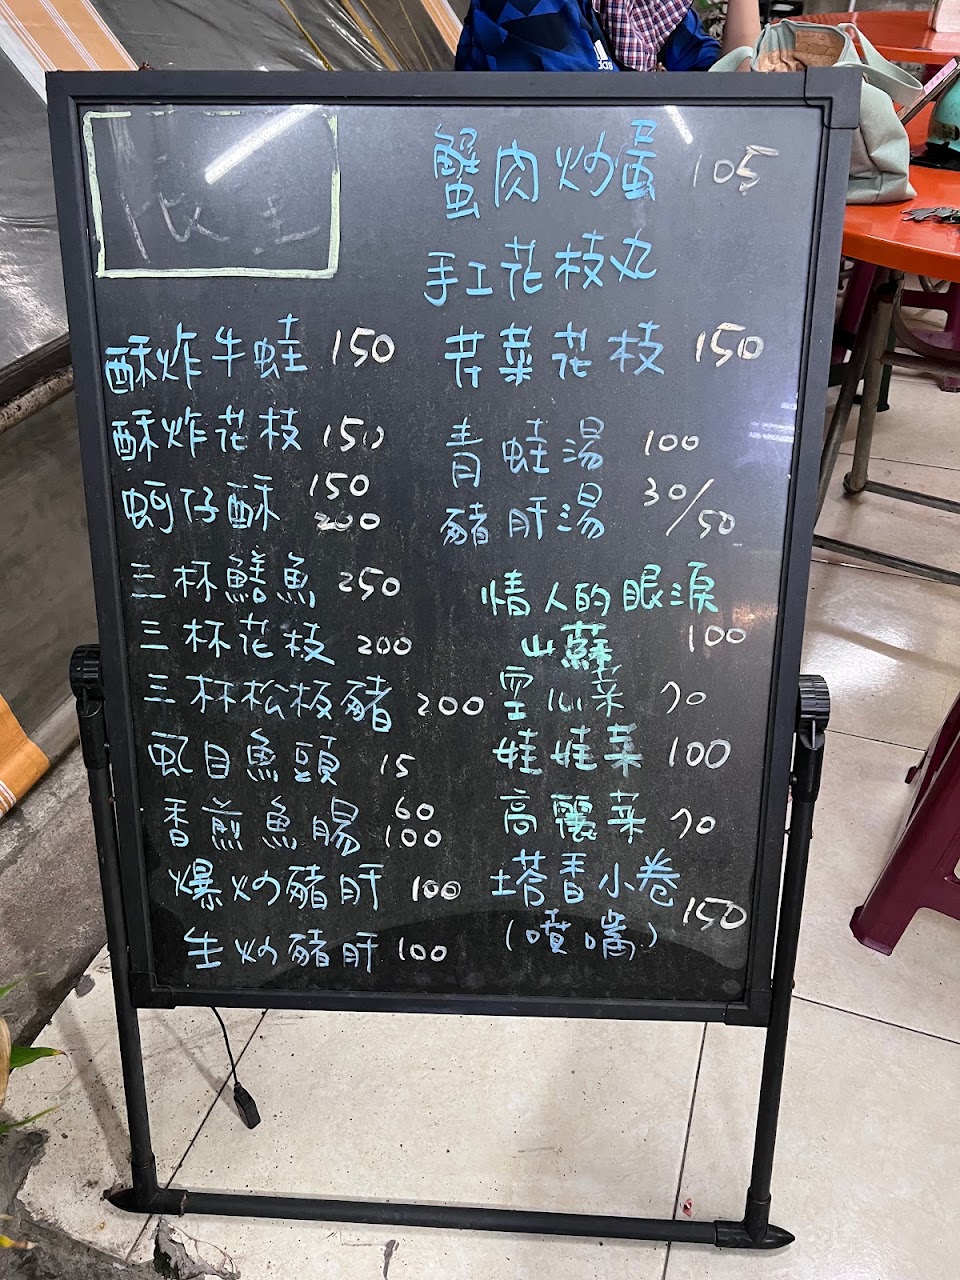 蟹肉炒蛋 105
手工花枝丸
酥炸牛蛙 150
酥炸花枝 150
蚵仔酥 150
200
三杯鱔魚 250
三杯花枝 200
三杯松板豬 200
虱目魚頭 15
香煎魚腸 60
100
爆炒豬肝 100
生炒豬肝 100
芹菜花枝 150
青蛙湯 100
豬肝湯 30/50
情人的眼淚
山蘇 100
空心菜 70
娃娃菜 100
高麗菜 70
塔香小卷
(噴嘴) 150
adidas